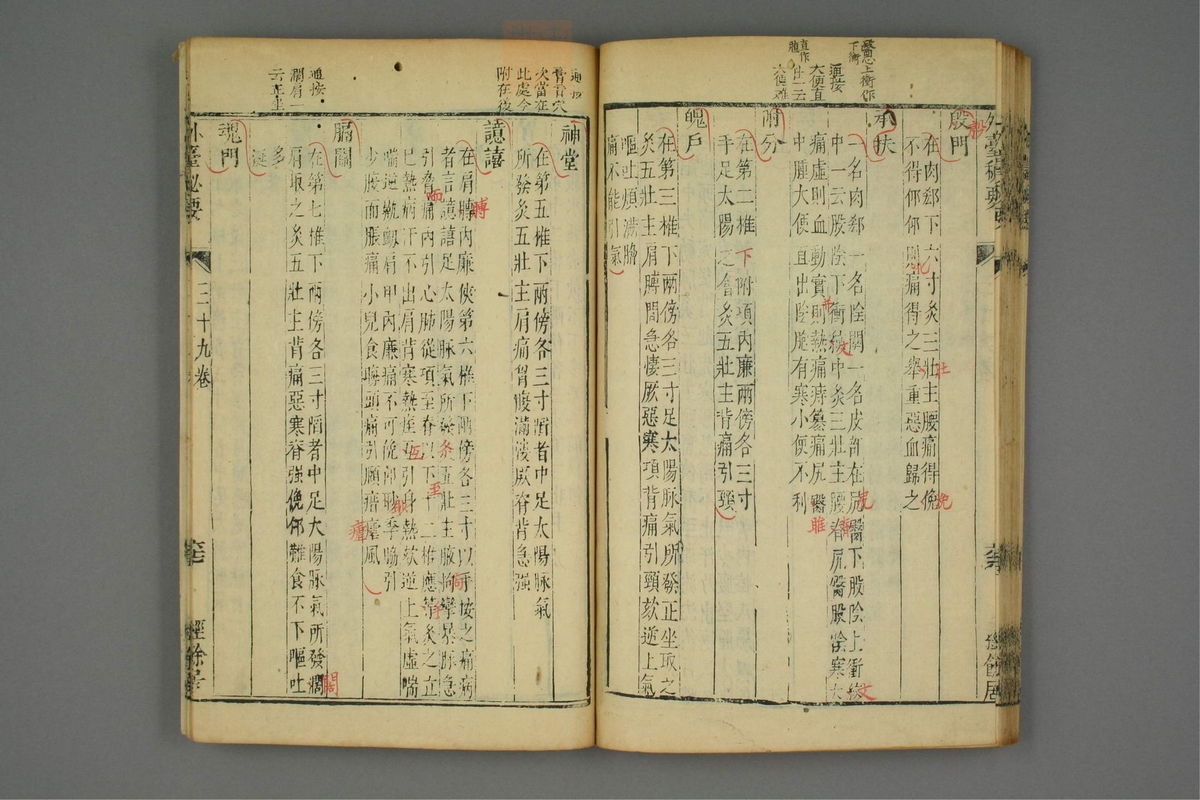 外臺秘要
殷門
在肉郄下六寸灸三壯主腰痛得俛
不得仰仰則痛得之舉重惡血歸之
承扶
一名肉郄一名陰關一名皮部在尻臀下股陰上衝
中一云股陰下衝紋中灸三壯主腰脊尻臀股陰寒大
痛虛則血動實則熱痛痔篡痛尻
中腫大便直出陰胞有寒小便不利
附分
在第二椎下附項內廉兩傍各三寸
手足太陽之會灸五壯主背痛引頸
魄戶
在第三椎下兩傍各三寸足太陽脉氣所發正坐取之
灸五壯主肩髆間急悽厥惡寒項背痛引頸欬逆上氣
嘔吐煩滿
痛不能引氣
經餘居
神堂
在第五椎下兩傍各三寸陷者中足太陽脉氣
所發灸五壯主肩痛胷腹滿悽厥脊背急强
譩譆
在肩髆內廉俠第六椎下兩傍各三寸以手按之痛病
者言譩譆足太陽脉氣所發灸五壯主腋拘攣暴脉急
引脅痛內引心肺從項至脊以下十二椎應手灸之立
已熱病汗不出肩背寒熱痙互引身熱欬逆上氣虛喘
喘逆鼽衂肩甲內廉痛不可俛仰眇季脇引
少腹而脹痛小兒食晦頭痛引頤痎瘧風
膈關
在第七椎下兩傍各三寸陷者中足太陽脉氣所發濶
肩取之灸五壯主背痛惡寒脊强俛仰難食不下嘔吐
多
涎
魂門
外臺秘要
三十九卷
經餘居